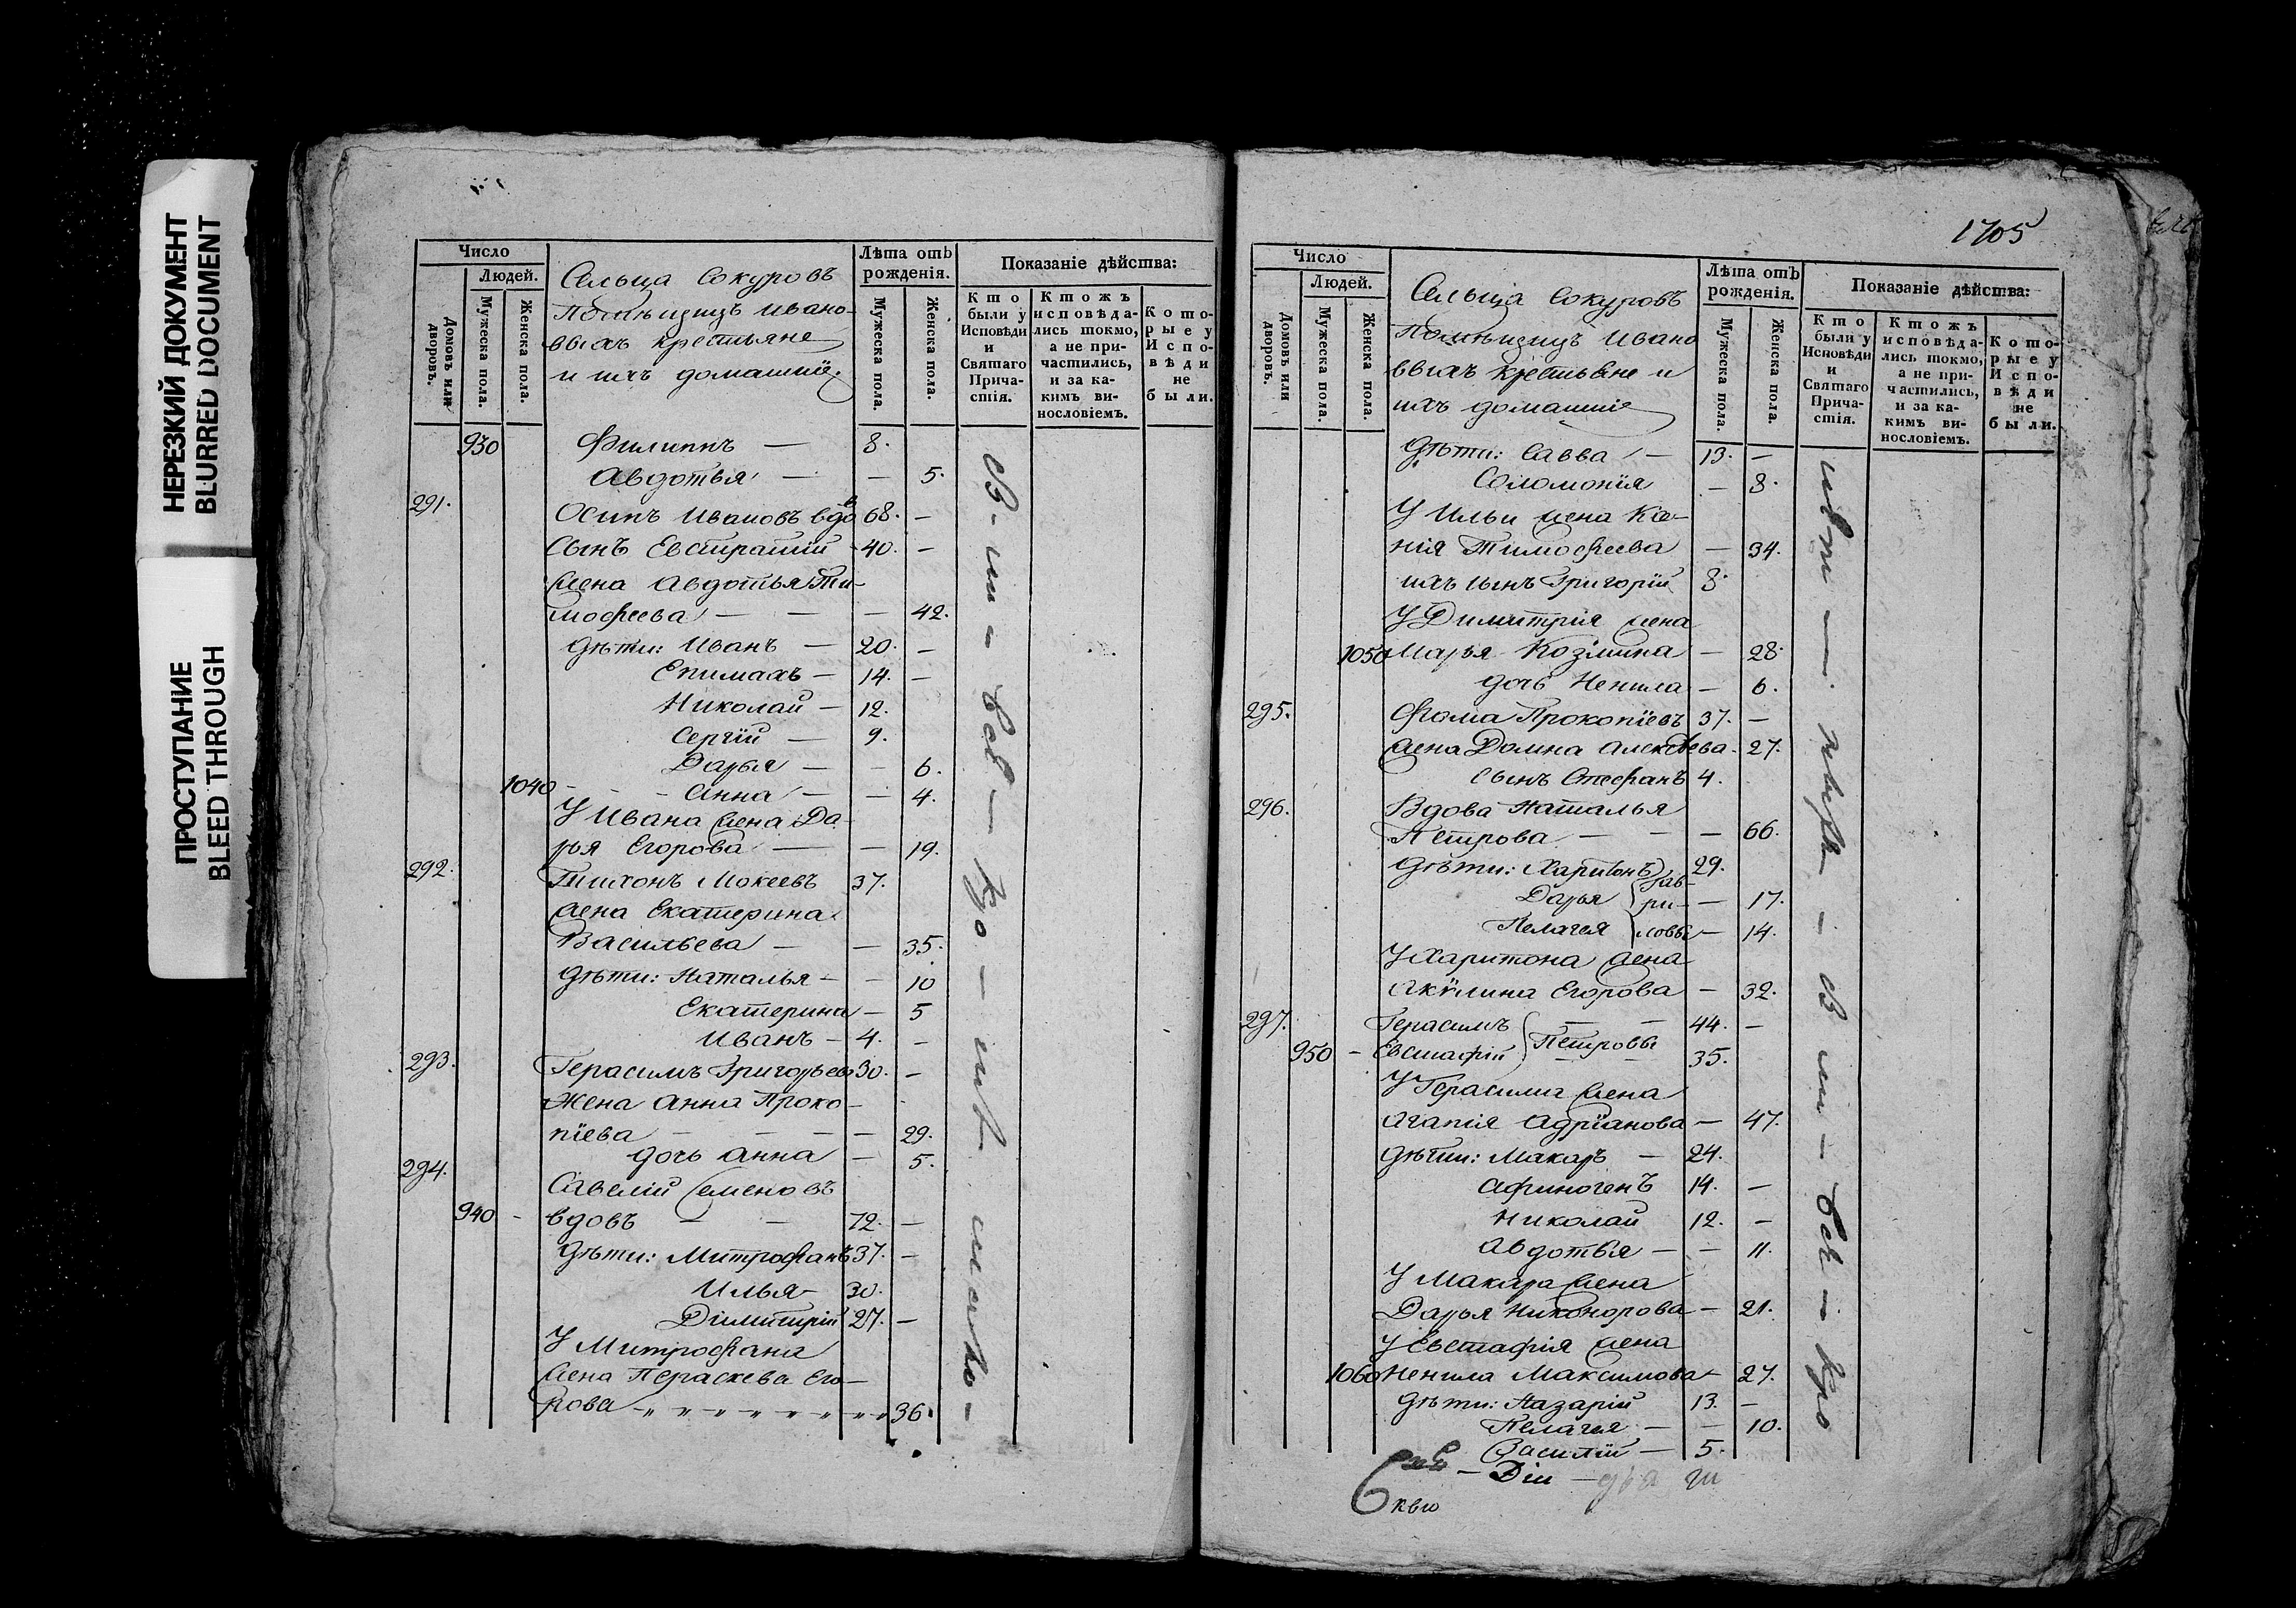 НЕРЕЗКИЙ ДОКУМЕНТ
BLURRED DOCUMENT
ПРОСТУПАНИЕ
BLEED THROUGH
Число
Людей.
Домовъ или дворовъ.
Мужеска пола.
Женска пола.
Сельца Сокуровъ
Помѣщицъ Ивано-
выхъ крестьяне
и ихъ домашніе.
Лѣта отъ рожденія.
Мужеска пола.
Женска пола.
Показаніе дѣйства:
Кто были у Исповѣди и Святаго Причастія.
Ктожъ исповѣдались токмо, а не причастились, и за какимъ винословіемъ.
Которые у Исповѣди не были.
930 Филиппъ — 8.
Авдотья — — 5.
291. Осипъ Ивановъ вдов 68. —
Сынъ Евстратій 40. —
Жена Авдотья Ти-
мофеева — — — 42.
Дѣти: Иванъ — 20. —
Епимахъ — 14. —
Николай — 12.
Сергій — 9.
Дарья — — 6.
1040 - - - Анна — — 4.
У Ивана жена Да-
рья Егорова — — 19.
292. Тихонъ Мокеевъ 37.
Жена Екатерина
Васильева — — 35.
Дѣти: Наталья — — 10
Екатерина — 5
Иванъ — 4. —
293. Герасимъ Григорьевъ 30. —
Жена Анна Проко-
піева — — — — 29.
дочь Анна — 5.
294. Савелій Семеновъ
940 - вдовъ — — 72. —
Дѣти: Митрофанъ 37. —
Илья — 30.
Димитрій 27. —
У Митрофана
жена Пераскева Его-
рова 36.
1705
Число
Людей.
Домовъ или дворовъ.
Мужеска пола.
Женска пола.
Сельца Сокуровъ
Помѣщицъ Ивано
выхъ крестьяне и
ихъ домашніе
Лѣта отъ рожденія.
Мужеска пола.
Женска пола.
Показаніе дѣйства:
Кто были у Исповѣди и Святаго Причастія.
Ктожъ исповѣдались токмо, а не причастились, и за какимъ винословіемъ.
Которые у Исповѣди не были.
Дѣти: Савва — 13. —
Соломонія — 8.
У Ильи жена Ксе-
нія Тимофеева — 34.
ихъ сынъ Григорій 8.
У Димитрія жена
1050 Марья Козмина — 28.
дочь Ненила — 6.
295. Фома Прокопіевъ 37. —
жена Домна Алексѣева 27.
сынъ Стефанъ 4.
296. Вдова Наталья
Петрова — — — 66.
Дѣти: Харитонъ 29.
Дарья Гав-ри-ловы — 17.
Пелагея — 14.
У Харитона жена
Акулина Егорова — 32.
297. Герасимъ — — 44. —
950 - Евстафій Петровы 35.
У Герасима жена
Агапія Адріанова — 47.
Дѣти: Макаръ — 24.
Афиногенъ 14. —
Николай 12. —
Авдотья — — 11.
У Макара жена
Дарья Никонорова — 21.
У Евстафія жена
1060 Ненила Максимова — 27.
Дѣти: Назарій 13. —
Пелагея — — 10.
Василій — 5.